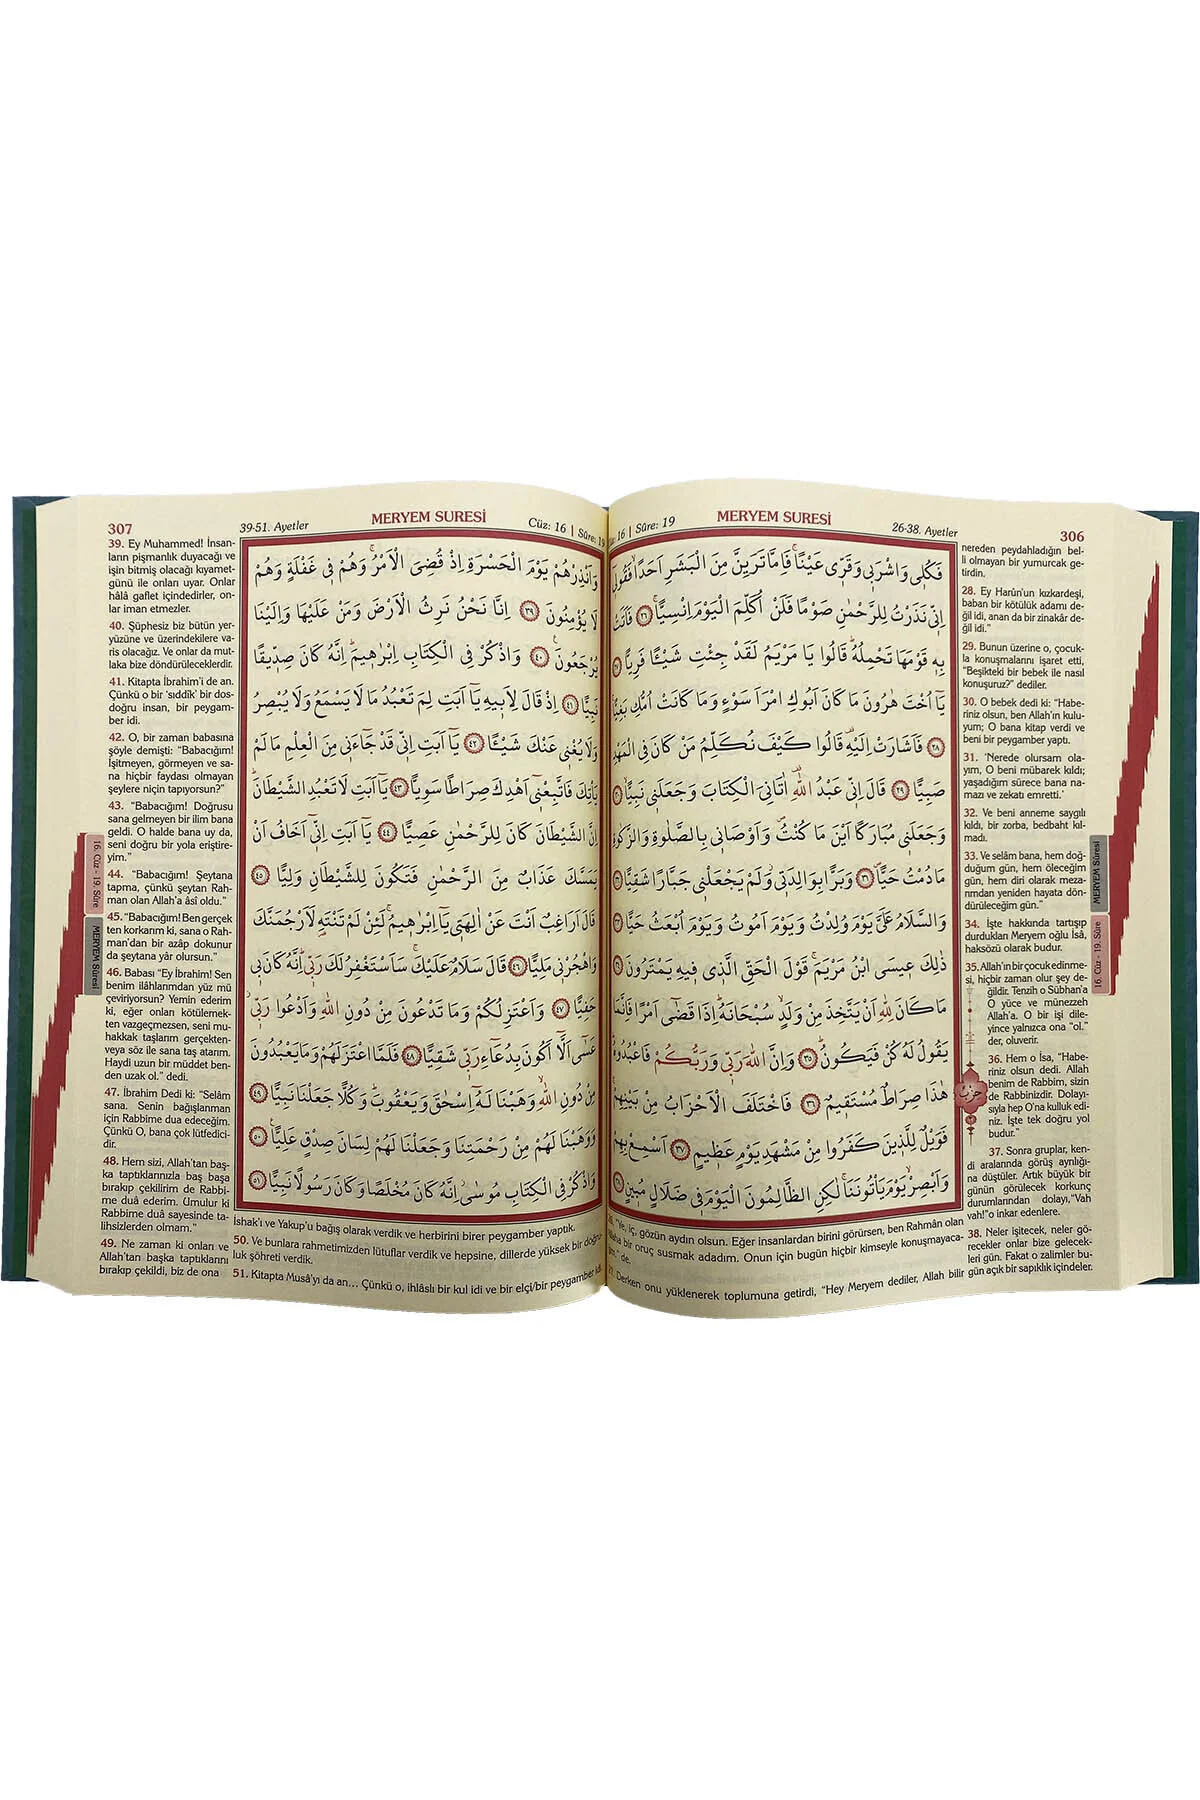 307
39-51. Ayetler
MERYEM SURESİ
Cüz: 16 | Sûre: 19
39. Ey Muhammed! İnsan-
ların pişmanlık duyacağı ve
işin bitmiş olacağı kıyamet-
günü ile onları uyar. Onlar
hâlâ gaflet içindedirler, on-
lar iman etmezler.
40. Şüphesiz biz bütün yer-
yüzüne ve üzerindekilere va-
ris olacağız. Ve onlar da mut-
laka bize döndürüleceklerdir.
41. Kitapta İbrahim'i de an.
Çünkü o bir 'sıddîk' bir dos-
doğru insan, bir peygam-
ber idi.
42. O, bir zaman babasına
şöyle demişti: "Babacığım!
İşitmeyen, görmeyen ve sa-
na hiçbir faydası olmayan
şeylere niçin tapıyorsun?"
43. "Babacığım! Doğrusu
sana gelmeyen bir ilim bana
geldi. O halde bana uy da,
seni doğru bir yola eriştire-
yim."
44. "Babacığım! Şeytana
tapma, çünkü şeytan Rah-
man olan Allah'a âsî oldu."
45. "Babacığım! Ben gerçek
ten korkarım ki, sana o Rah-
man'dan bir azâp dokunur
da şeytana yâr olursun."
46. Babası "Ey İbrahim! Sen
benim ilâhlarımdan yüz mü
çeviriyorsun? Yemin ederim
ki, eğer onları kötülemek-
ten vazgeçmezsen, seni mu-
hakkak taşlarım gerçekten-
veya söz ile sana taş atarım.
Haydi uzun bir müddet ben-
den uzak ol." dedi.
47. İbrahim Dedi ki: "Selâm
sana. Senin bağışlanman
için Rabbime dua edeceğim.
Çünkü O, bana çok lütfedici-
dir.
48. Hem sizi, Allah'tan baş-
ka taptıklarınızla baş başa
bırakıp çekilirim de Rabbi-
me duâ ederim. Umulur ki
Rabbime duâ sayesinde ta-
lihsizlerden olmam."
49. Ne zaman ki onları ve
Allah'tan başka taptıklarını
bırakıp çekildi, biz de ona
وَاَنْذِرْهُمْ يَوْمَ الْحَسْرَةِ اِذْ قُضِىَ الْاَمْرُۢ وَهُمْ فٖى غَفْلَةٍ وَهُمْ
لَا يُؤْمِنُونَ ﴿٣٩﴾ اِنَّا نَحْنُ نَرِثُ الْاَرْضَ وَمَنْ عَلَيْهَا وَاِلَيْنَا
يُرْجَعُونَ ﴿٤٠﴾ وَاذْكُرْ فِى الْكِتَابِ اِبْرٰهٖيمَ اِنَّهُ كَانَ صِدّٖيقًا
نَبِيًّا ﴿٤١﴾ اِذْ قَالَ لِاَبٖيهِ يَٓا اَبَتِ لِمَ تَعْبُدُ مَا لَا يَسْمَعُ وَلَا يُبْصِرُ
وَلَا يُغْنٖى عَنْكَ شَيْـًٔا ﴿٤٢﴾ يَٓا اَبَتِ اِنّٖى قَدْ جَٓاءَنٖى مِنَ الْعِلْمِ مَا لَمْ
يَأْتِكَ فَاتَّبِعْنٖٓى اَهْدِكَ صِرَاطًا سَوِيًّا ﴿٤٣﴾ يَٓا اَبَتِ لَا تَعْبُدِ الشَّيْطَانَ
اِنَّ الشَّيْطَانَ كَانَ لِلرَّحْمٰنِ عَصِيًّا ﴿٤٤﴾ يَٓا اَبَتِ اِنّٖٓى اَخَافُ اَنْ
يَمَسَّكَ عَذَابٌ مِنَ الرَّحْمٰنِ فَتَكُونَ لِلشَّيْطَانِ وَلِيًّا ﴿٤٥﴾
قَالَ اَرَاغِبٌ اَنْتَ عَنْ اٰلِهَتٖى يَٓا اِبْرٰهٖيمُ لَئِنْ لَمْ تَنْتَهِ لَاَرْجُمَنَّكَ
وَاهْجُرْنٖى مَلِيًّا ﴿٤٦﴾ قَالَ سَلَامٌ عَلَيْكَ سَاَسْتَغْفِرُ لَكَ رَبّٖى اِنَّهُ كَانَ بٖى
حَفِيًّا ﴿٤٧﴾ وَاَعْتَزِلُكُمْ وَمَا تَدْعُونَ مِنْ دُونِ اللّٰهِ وَاَدْعُوا رَبّٖى
عَسٰٓى اَلَّٓا اَكُونَ بِدُعَٓاءِ رَبّٖى شَقِيًّا ﴿٤٨﴾ فَلَمَّا اعْتَزَلَهُمْ وَمَا يَعْبُدُونَ
مِنْ دُونِ اللّٰهِ وَهَبْنَا لَهُٓ اِسْحٰقَ وَيَعْقُوبَ وَكُلًّا جَعَلْنَا نَبِيًّا ﴿٤٩﴾
وَوَهَبْنَا لَهُمْ مِنْ رَحْمَتِنَا وَجَعَلْنَا لَهُمْ لِسَانَ صِدْقٍ عَلِيًّا ﴿٥٠﴾
وَاذْكُرْ فِى الْكِتَابِ مُوسٰٓى اِنَّهُ كَانَ مُخْلَصًا وَكَانَ رَسُولًا نَبِيًّا ﴿٥١﴾
İshak'ı ve Yakup'u bağış olarak verdik ve herbirini birer peygamber yaptık.
50. Ve bunlara rahmetimizden lütuflar verdik ve hepsine, dillerde yüksek bir doğru-
luk şöhreti verdik.
51. Kitapta Musâ'yı da an... Çünkü o, ihlâslı bir kul idi ve bir elçi/bir peygamber
16. Cüz - 19. Sûre
MERYEM Sûresi
16 | Sûre: 19
MERYEM SURESİ
26-38. Ayetler
306
فَكُلٖى وَاشْرَبٖى وَقَرّٖى عَيْنًا فَاِمَّا تَرَيِنَّ مِنَ الْبَشَرِ اَحَدًا فَقُولٖٓى
اِنّٖى نَذَرْتُ لِلرَّحْمٰنِ صَوْمًا فَلَنْ اُكَلِّمَ الْيَوْمَ اِنْسِيًّا ﴿٢٦﴾ فَاَتَتْ
بِهٖ قَوْمَهَا تَحْمِلُهُ قَالُوا يَا مَرْيَمُ لَقَدْ جِئْتِ شَيْـًٔا فَرِيًّا
يَٓا اُخْتَ هٰرُونَ مَا كَانَ اَبُوكِ امْرَاَ سَوْءٍ وَمَا كَانَتْ اُمُّكِ بَغِيًّا
﴿٢٨﴾ فَاَشَارَتْ اِلَيْهِ قَالُوا كَيْفَ نُكَلِّمُ مَنْ كَانَ فِى الْمَهْدِ
صَبِيًّا ﴿٢٩﴾ قَالَ اِنّٖى عَبْدُ اللّٰهِ اٰتَانِىَ الْكِتَابَ وَجَعَلَنٖى نَبِيًّا
وَجَعَلَنٖى مُبَارَكًا اَيْنَ مَا كُنْتُ وَاَوْصَانٖى بِالصَّلٰوةِ وَالزَّكٰوةِ
مَا دُمْتُ حَيًّا ﴿٣١﴾ وَبَرًّا بِوَالِدَتٖى وَلَمْ يَجْعَلْنٖى جَبَّارًا شَقِيًّا
وَالسَّلَامُ عَلَىَّ يَوْمَ وُلِدْتُ وَيَوْمَ اَمُوتُ وَيَوْمَ اُبْعَثُ حَيًّا
ذٰلِكَ عٖيسَى ابْنُ مَرْيَمَ قَوْلَ الْحَقِّ الَّذٖى فٖيهِ يَمْتَرُونَ
مَا كَانَ لِلّٰهِ اَنْ يَتَّخِذَ مِنْ وَلَدٍ سُبْحَانَهُ اِذَا قَضٰٓى اَمْرًا فَاِنَّمَا
يَقُولُ لَهُ كُنْ فَيَكُونُ ﴿٣٥﴾ وَاِنَّ اللّٰهَ رَبّٖى وَرَبُّكُمْ فَاعْبُدُوهُ
هٰذَا صِرَاطٌ مُسْتَقٖيمٌ ﴿٣٦﴾ فَاخْتَلَفَ الْاَحْزَابُ مِنْ بَيْنِهِمْ
فَوَيْلٌ لِلَّذٖينَ كَفَرُوا مِنْ مَشْهَدِ يَوْمٍ عَظٖيمٍ ﴿٣٧﴾ اَسْمِعْ بِهِمْ
وَاَبْصِرْ يَوْمَ يَأْتُونَنَا لٰكِنِ الظَّالِمُونَ الْيَوْمَ فٖى ضَلَالٍ مُبٖينٍ
"Ye, iç, gözün aydın olsun. Eğer insanlardan birini görürsen, ben Rahmân olan
bir oruç susmak adadım. Onun için bugün hiçbir kimseyle konuşmayaca-
de.
Derken onu yüklenerek toplumuna getirdi, "Hey Meryem dediler, Allah bilir
nereden peydahladığın bel-
li olmayan bir yumurcak ge-
tirdin.
28. Ey Harûn'un kızkardeşi,
baban bir kötülük adamı de-
ğil idi, anan da bir zinakâr de-
ğil idi."
29. Bunun üzerine o, çocuk-
la konuşmalarını işaret etti,
"Beşikteki bir bebek ile nasıl
konuşuruz?" dediler.
30. O bebek dedi ki: "Habe-
riniz olsun, ben Allah'ın kulu-
yum; O bana kitap verdi ve
beni bir peygamber yaptı.
31. 'Nerede olursam ola-
yım, O beni mübarek kıldı;
yaşadığım sürece bana na-
mazı ve zekatı emretti.'
32. Ve beni anneme saygılı
kıldı, bir zorba, bedbaht kıl-
madı.
33. Ve selâm bana, hem doğ-
duğum gün, hem öleceğim
gün, hem diri olarak meza-
rımdan yeniden hayata dön-
dürüleceğim gün."
34. İşte hakkında tartışıp
durdukları Meryem oğlu İsâ,
haksözü olarak budur.
35. Allah'ın bir çocuk edinme-
si, hiçbir zaman olur şey de-
ğildir. Tenzih o Sübhan'a
O yüce ve münezzeh
Allah'a. O bir işi dile-
yince yalnızca ona "ol."
der, oluverir.
36. Hem o İsa, "Habe-
riniz olsun dedi. Allah
benim de Rabbim, sizin
de Rabbinizdir. Dolayı-
sıyla hep O'na kulluk edi-
niz. İşte tek doğru yol
budur."
37. Sonra gruplar, ken-
di aralarında görüş ayrılığı-
na düştüler. Artık büyük bir
günün görülecek korkunç
durumlarından dolayı,"Vah
vah!"o inkar edenlere.
38. Neler işitecek, neler gö-
recekler onlar bize gelecek-
leri gün. Fakat o zalimler bu-
gün açık bir sapıklık içindeler.
حزب
MERYEM Sûresi
16. Cüz - 19. Sûre